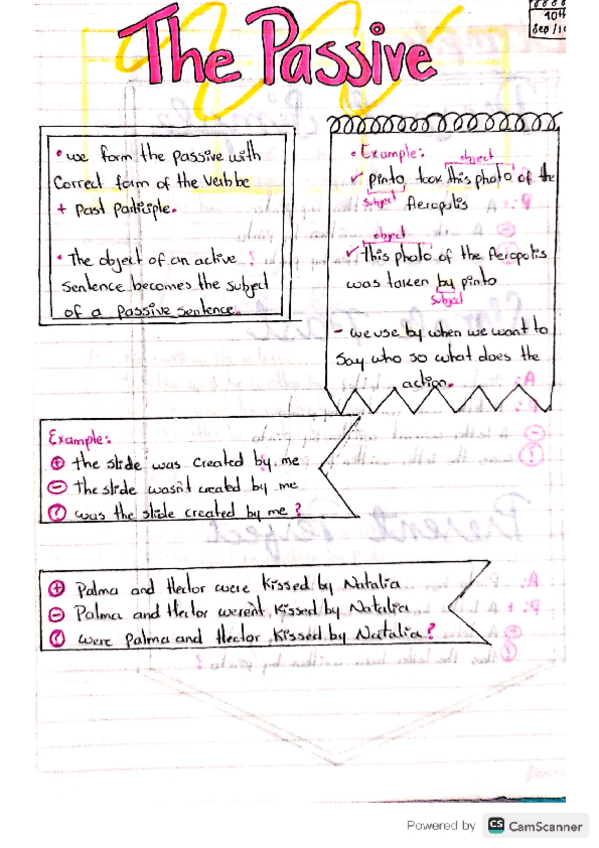 The Passive
10th
Sep/10
• we form the Passive with
Correct form of the Verb be
+ Past Participle.
• The object of an active
Sentence becomes the subject
of a Passive Sentence.
• Example:
object
✓ pinto took this photo of the
subject
Aeropolis
object
✓ this photo of the Aeropolis
was taken by pinto
subject
- we use by when we want to
Say who so what does the
action.
Example:
+ the slide was created by me
- The slide wasn't created by me
? was the slide created by me?
+ Palma and Hector were kissed by Natalia
- Palma and Hector weren't kissed by Natalia
? were palma and Hector kissed by Natalia?
Powered by CS CamScanner